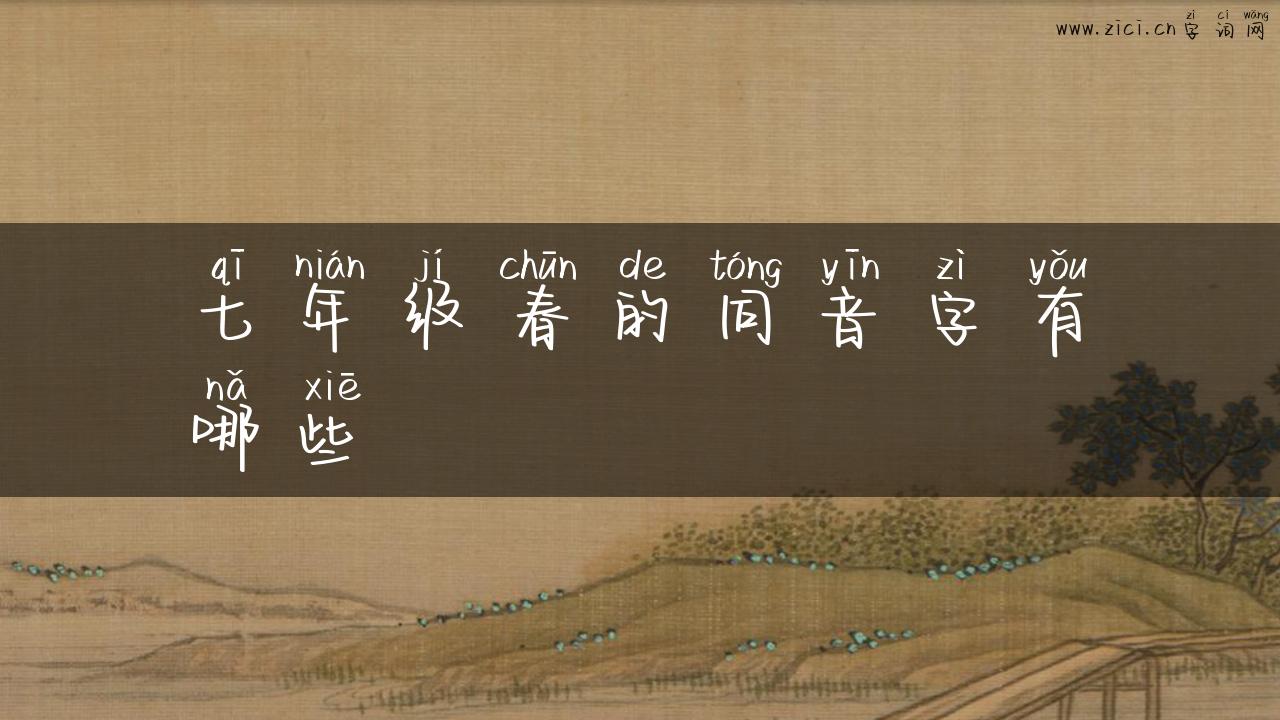 zì cí wǎng
www.zici.cn字词网
qī nián jí chūn de tóng yīn zì yǒu
七年级春的同音字有
nǎ xiē
哪些